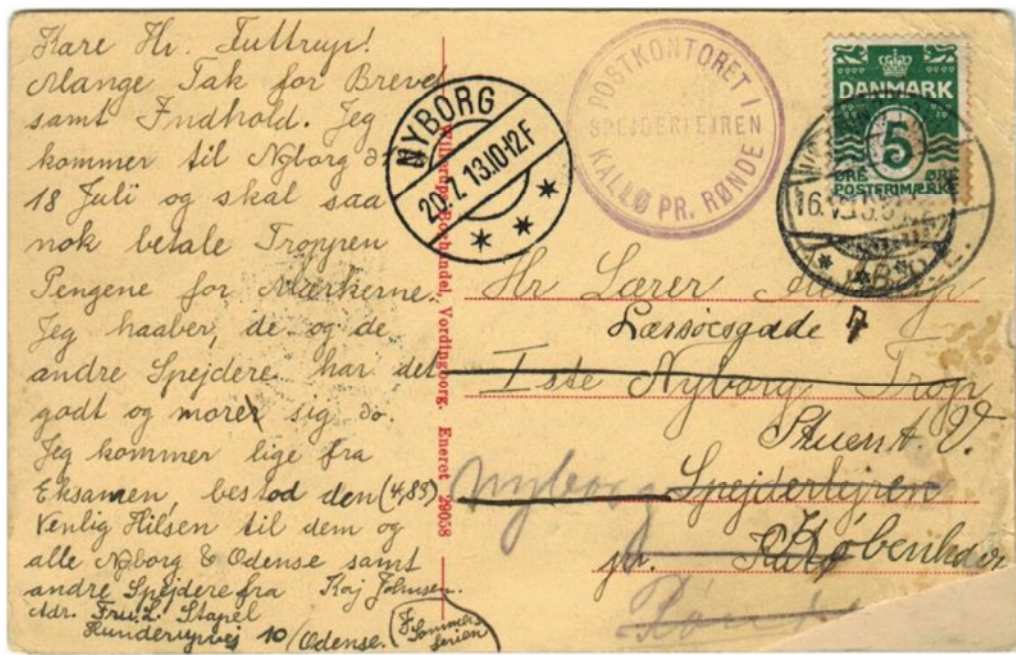 Kære Hr. Tuttrup!
Mange Tak for Brevet
samt Indhold. Jeg
kommer til Nyborg d.
18 Juli og skal saa
nok betale Troppen
Pengene for Mærkerne.
Jeg haaber, de og de
andre Spejdere har det
godt og morer sig do.
Jeg kommer lige fra
Eksamen, bestod den (4,85)
Venlig Hilsen til dem og
alle Nyborg & Odense samt
andre Spejdere fra Kaj Johnsen.
Adr. Fru. L. Stapel
Hunderupvej 10/Odense. (I Sommer-
ferien)
Wilstrups Boghandel, Vordingborg. Eneret 29058
NYBORG
20.7.13.10-12F
POSTKONTORET I
SPEJDERLEJREN
KALLØ PR. RØNDE
DANMARK
5
ØRE ØRE
POSTFRIMÆRKE
Hr Lærer
Læssøesgade 7
Iste Nyborg Trop
Stuen t.V.
Nyborg Spejderlejren
pr. Kalø
København